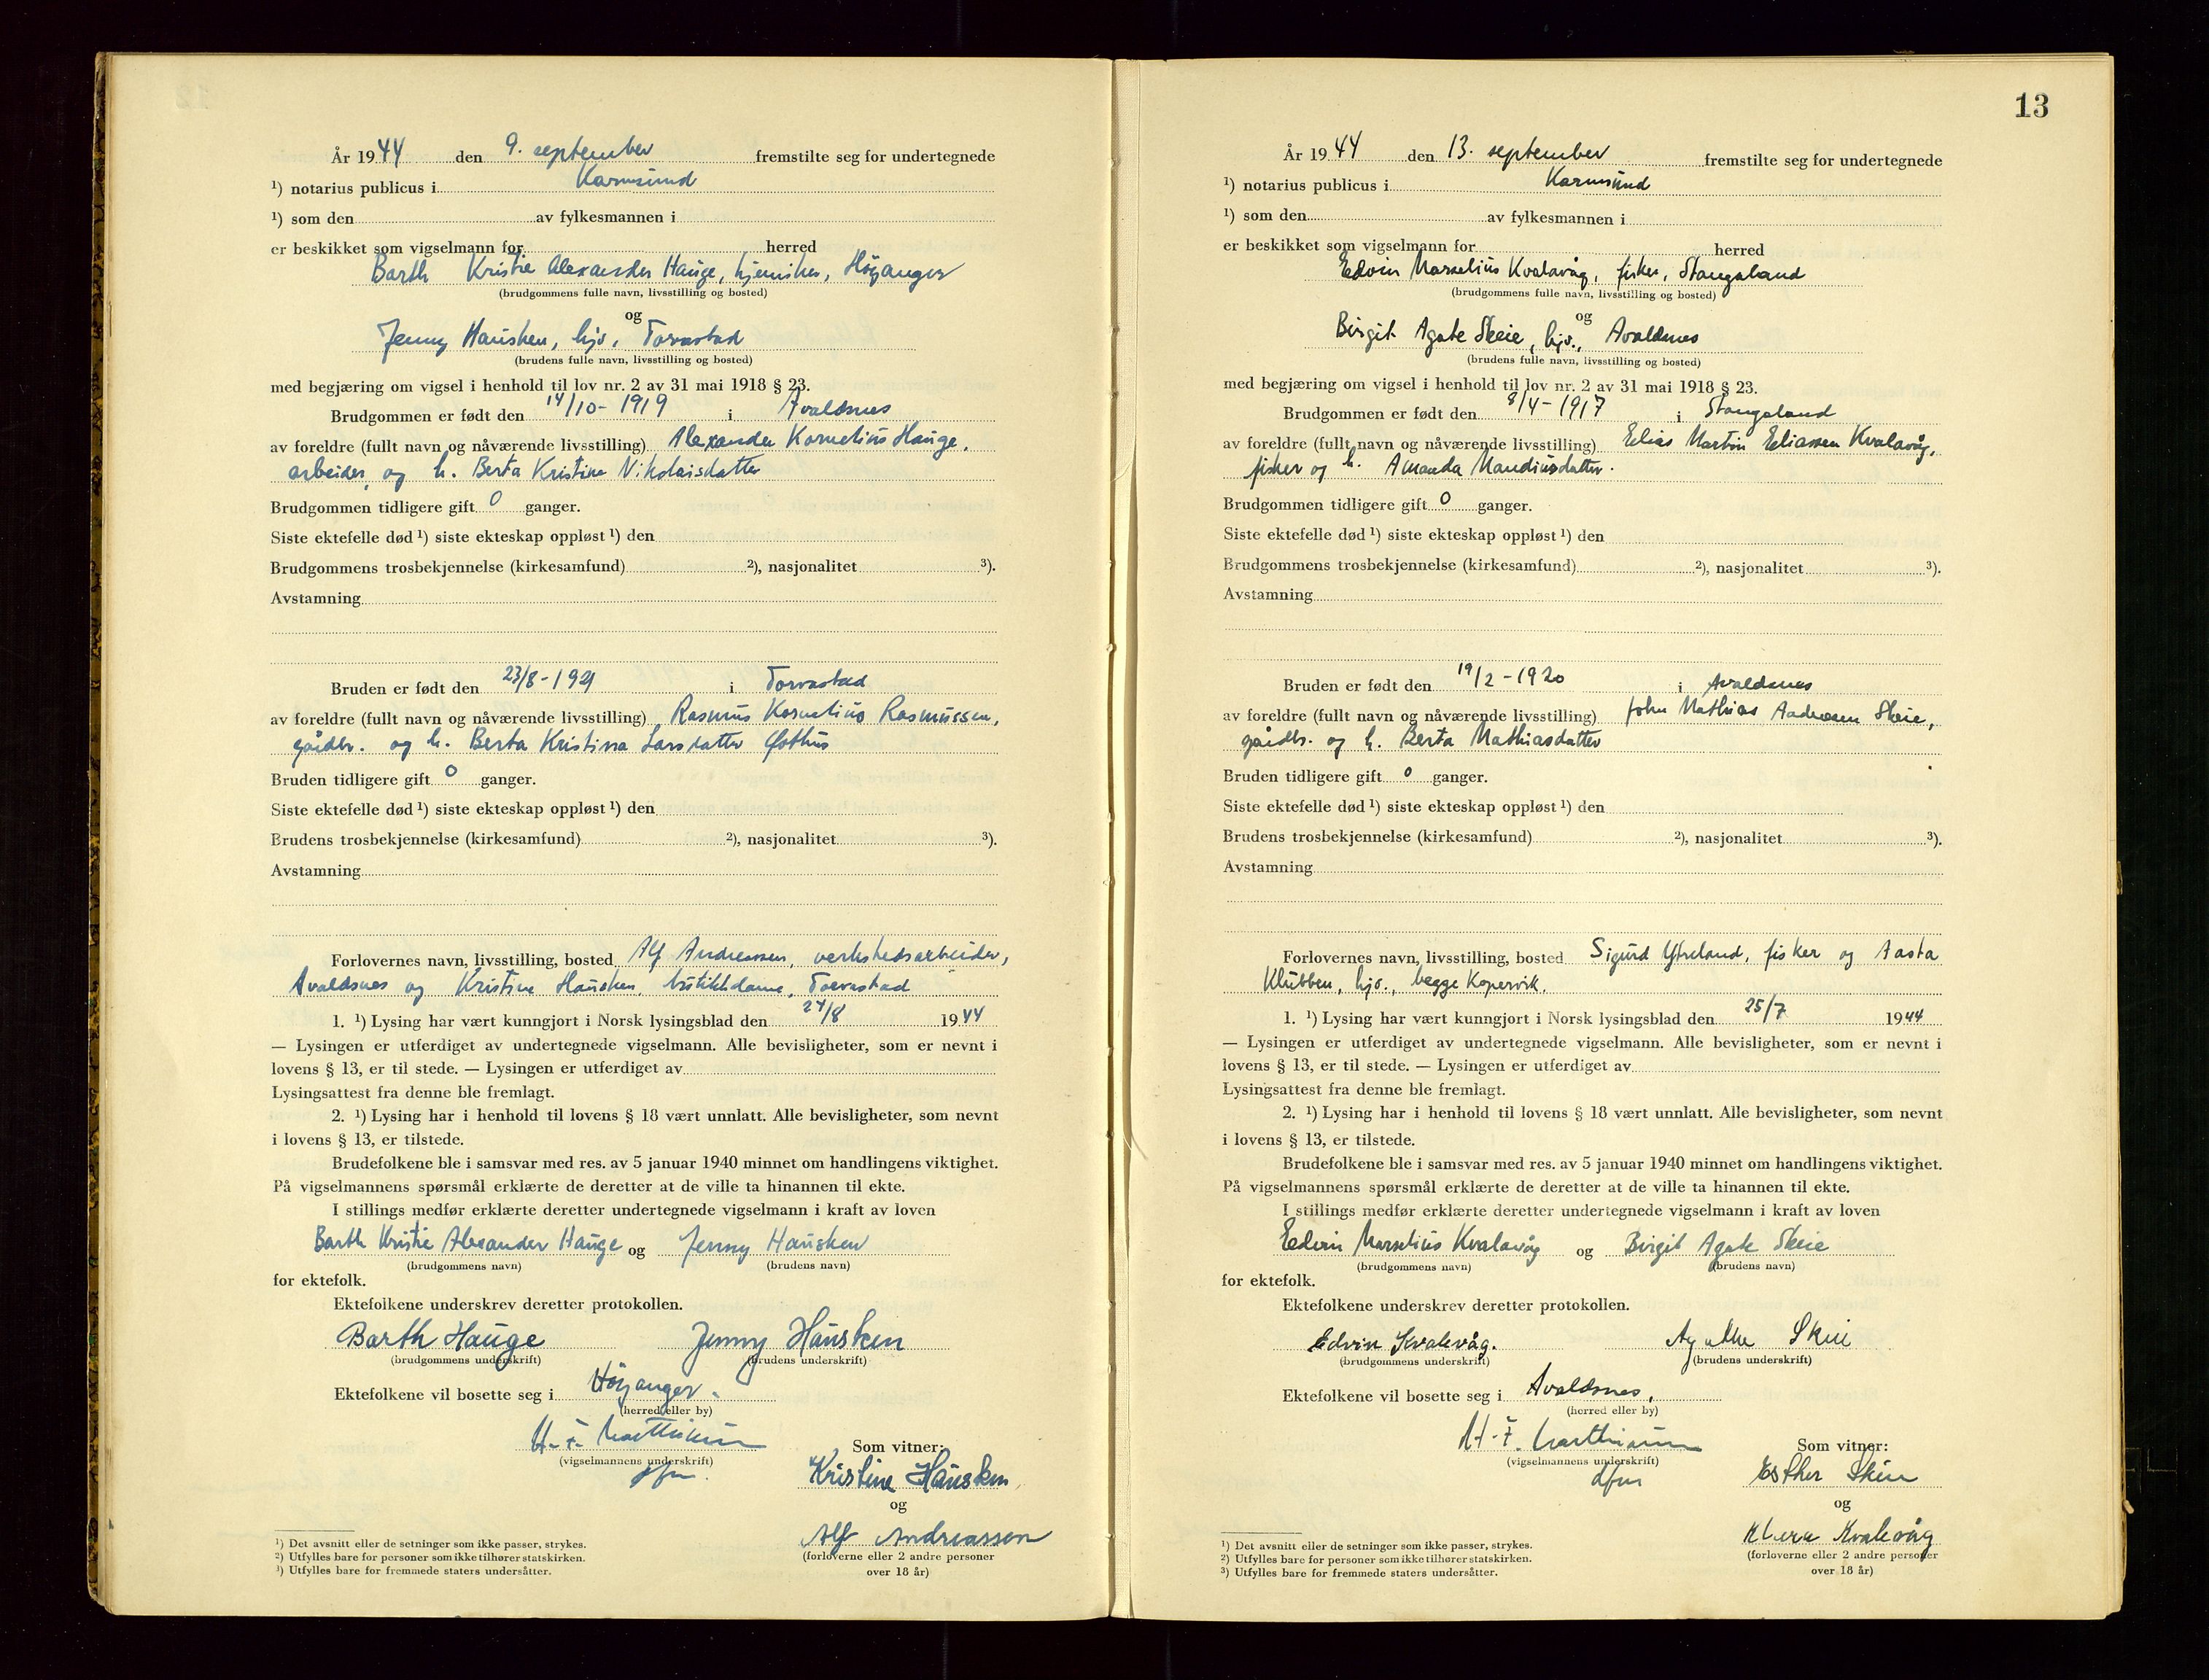 År 1944 den 9. september fremstilte seg for undertegnede
¹) notarius publicus i Karmsund
¹) som den av fylkesmannen i
er beskikket som vigselmann for herred
Barth Kristie Alexander Hauge, Høyanger
(brudgommens fulle navn, livsstilling og bosted)
og
Jenny Hausken, hjv., Torvastad
(brudens fulle navn, livsstilling og bosted)
med begjæring om vigsel i henhold til lov nr. 2 av 31 mai 1918 § 23.
Brudgommen er født den 14/10-1919 i Avaldsnes
av foreldre (fullt navn og nåværende livsstilling) Alexander Kornelius Hauge,
arbeider, og h. Berta Kristine Nikolaisdatter
Brudgommen tidligere gift 0 ganger.
Siste ektefelle død ¹) siste ekteskap oppløst ¹) den
Brudgommens trosbekjennelse (kirkesamfund) ²), nasjonalitet ³).
Avstamning
Bruden er født den 23/8-1921 i Torvastad
av foreldre (fullt navn og nåværende livsstilling) Rasmus Kornelius Rasmussen,
gårdbr. og h. Berta Kristina Larsdatter Østhus
Bruden tidligere gift 0 ganger.
Siste ektefelle død ¹) siste ekteskap oppløst ¹) den
Brudens trosbekjennelse (kirkesamfund) ²), nasjonalitet ³).
Avstamning
Forlovernes navn, livsstilling, bosted Alf Andreassen, verkstedsarbeider,
Avaldsnes og Kristine Hausken, butikkdame, Torvastad
1. ¹) Lysing har vært kunngjort i Norsk lysingsblad den 24/8 1944
— Lysingen er utferdiget av undertegnede vigselmann. Alle bevisligheter, som er nevnt i
lovens § 13, er til stede. — Lysingen er utferdiget av
Lysingsattest fra denne ble fremlagt.
2. ¹) Lysing har i henhold til lovens § 18 vært unnlatt. Alle bevisligheter, som nevnt
i lovens § 13, er tilstede.
Brudefolkene ble i samsvar med res. av 5 januar 1940 minnet om handlingens viktighet.
På vigselmannens spørsmål erklærte de deretter at de ville ta hinannen til ekte.
I stillings medfør erklærte deretter undertegnede vigselmann i kraft av loven
Barth Kristie Alexander Hauge og Jenny Hausken
(brudgommens navn) (brudens navn)
for ektefolk.
Ektefolkene underskrev deretter protokollen.
Barth Hauge Jenny Hausken
(brudgommens underskrift) (brudens underskrift)
Ektefolkene vil bosette seg i Høyanger.
(herred eller by)
(vigselmannens underskrift)
Som vitner:
Kristine Hausken
og
Alf Andreassen
(forloverne eller 2 andre personer
over 18 år)
¹) Det avsnitt eller de setninger som ikke passer, strykes.
²) Utfylles bare for personer som ikke tilhører statskirken.
³) Utfylles bare for fremmede staters undersåtter.
13
År 1944 den 13. september fremstilte seg for undertegnede
¹) notarius publicus i Karmsund
¹) som den av fylkesmannen i
er beskikket som vigselmann for herred
Edvin Marselius Kvalavåg, fisker, Stangaland
(brudgommens fulle navn, livsstilling og bosted)
og
Birgit Agate Skeie, hjv., Avaldsnes
(brudens fulle navn, livsstilling og bosted)
med begjæring om vigsel i henhold til lov nr. 2 av 31 mai 1918 § 23.
Brudgommen er født den 8/4-1917 i Stangaland
av foreldre (fullt navn og nåværende livsstilling) Elias Martin Eliassen Kvalavåg,
fisker og h. Amanda Mandiusdatter.
Brudgommen tidligere gift 0 ganger.
Siste ektefelle død ¹) siste ekteskap oppløst ¹) den
Brudgommens trosbekjennelse (kirkesamfund) ²), nasjonalitet ³).
Avstamning
Bruden er født den 19/2-1920 i Avaldsnes
av foreldre (fullt navn og nåværende livsstilling) John Mathias Andreasen Skeie,
gårdbr. og h. Berta Mathiasdatter
Bruden tidligere gift 0 ganger.
Siste ektefelle død ¹) siste ekteskap oppløst ¹) den
Brudens trosbekjennelse (kirkesamfund) ²), nasjonalitet ³).
Avstamning
Forlovernes navn, livsstilling, bosted Sigurd Ytreland, fisker og Aasta
Klubben, hjv., begge Kopervik.
1. ¹) Lysing har vært kunngjort i Norsk lysingsblad den 25/7 1944
— Lysingen er utferdiget av undertegnede vigselmann. Alle bevisligheter, som er nevnt i
lovens § 13, er til stede. — Lysingen er utferdiget av
Lysingsattest fra denne ble fremlagt.
2. ¹) Lysing har i henhold til lovens § 18 vært unnlatt. Alle bevisligheter, som nevnt
i lovens § 13, er tilstede.
Brudefolkene ble i samsvar med res. av 5 januar 1940 minnet om handlingens viktighet.
På vigselmannens spørsmål erklærte de deretter at de ville ta hinannen til ekte.
I stillings medfør erklærte deretter undertegnede vigselmann i kraft av loven
Edvin Marselius Kvalavåg og Birgit Agate Skeie
(brudgommens navn) (brudens navn)
for ektefolk.
Ektefolkene underskrev deretter protokollen.
Edvin Kvalevåg. Agathe Skeie
(brudgommens underskrift) (brudens underskrift)
Ektefolkene vil bosette seg i Avaldsnes.
(herred eller by)
(vigselmannens underskrift)
Som vitner:
Esther Skeie
og
Kvalevåg
(forloverne eller 2 andre personer
over 18 år)
¹) Det avsnitt eller de setninger som ikke passer, strykes.
²) Utfylles bare for personer som ikke tilhører statskirken.
³) Utfylles bare for fremmede staters undersåtter.